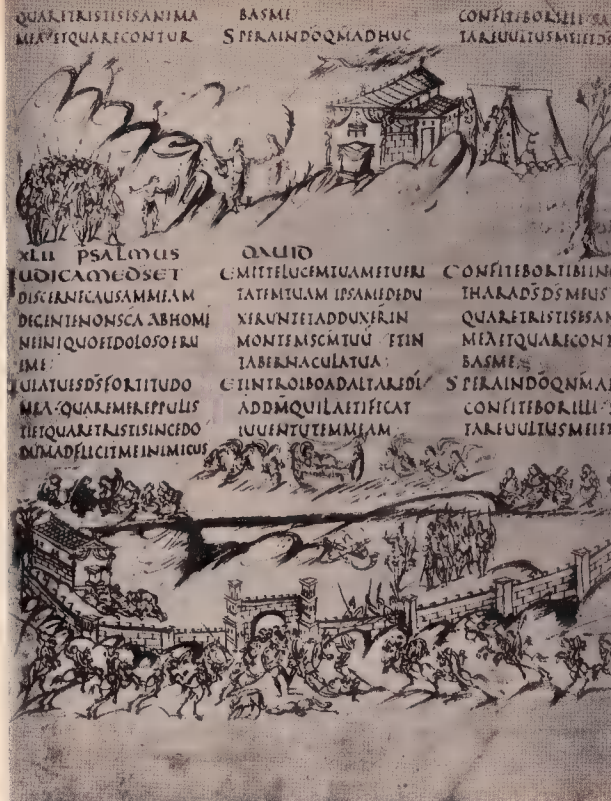 QUARETRISTISESANIMA
MEAETQUARECONTUR
BASME
SPERAINDŌQMADHUC
CONFITEBORILLI SA
TAREUULTUSMEIETDS
XLII PSALMUS DAUID
IUDICAMEDSET
DISCERNECAUSAMMEAM
DEGENTENONSCA ABHOMI
NEINIQUOETDOLOSOERU
EME:
QUIATUESDS̄FORTITUDO
MEA·QUAREMEREPPULIS
TIETQUARETRISTISINCEDO
DUMADFLICITMEINIMICUS
EMITTELUCEMTUAMETUERI
TATEMTUAM IPSAMEDEDU
XERUNTETADDUXERIN
MONTEMSC̄MTUŪ ETIN
TABERNACULATUA:
ETINTROIBOADALTAREDI
ADDM̄QUILAETIFICAT
IUUENTUTEMMEAM:
CONFITEBORTIBIINCI
THARADS̄DS̄MEUS
QUARETRISTISESAN
MEAETQUARECONT
BASME
SPERAINDŌQNMA
CONFITEBORILLI S
TAREUULTUSMEIET